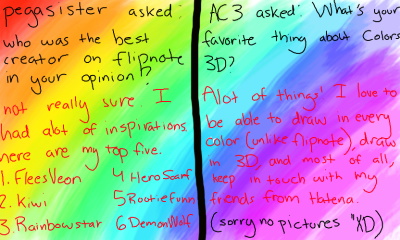 pegasister asked:
who was the best
creator on flipnote
in your opinion?
not really sure. I
had alot of inspirations.
here are my top five.
1. FleesVeon 4 HeroScarf
2. Kiwi 5 Rootiefunn
3. Rainbowstar 6 DemonWolf
AC3 asked: What's your
favorite thing about Colors
3D?
Alot of things! I love to
be able to draw in every
color (unlike flipnote), draw
in 3D and most of all,
keep in touch with my
friends from Hatena.
(sorry no pictures "XD)